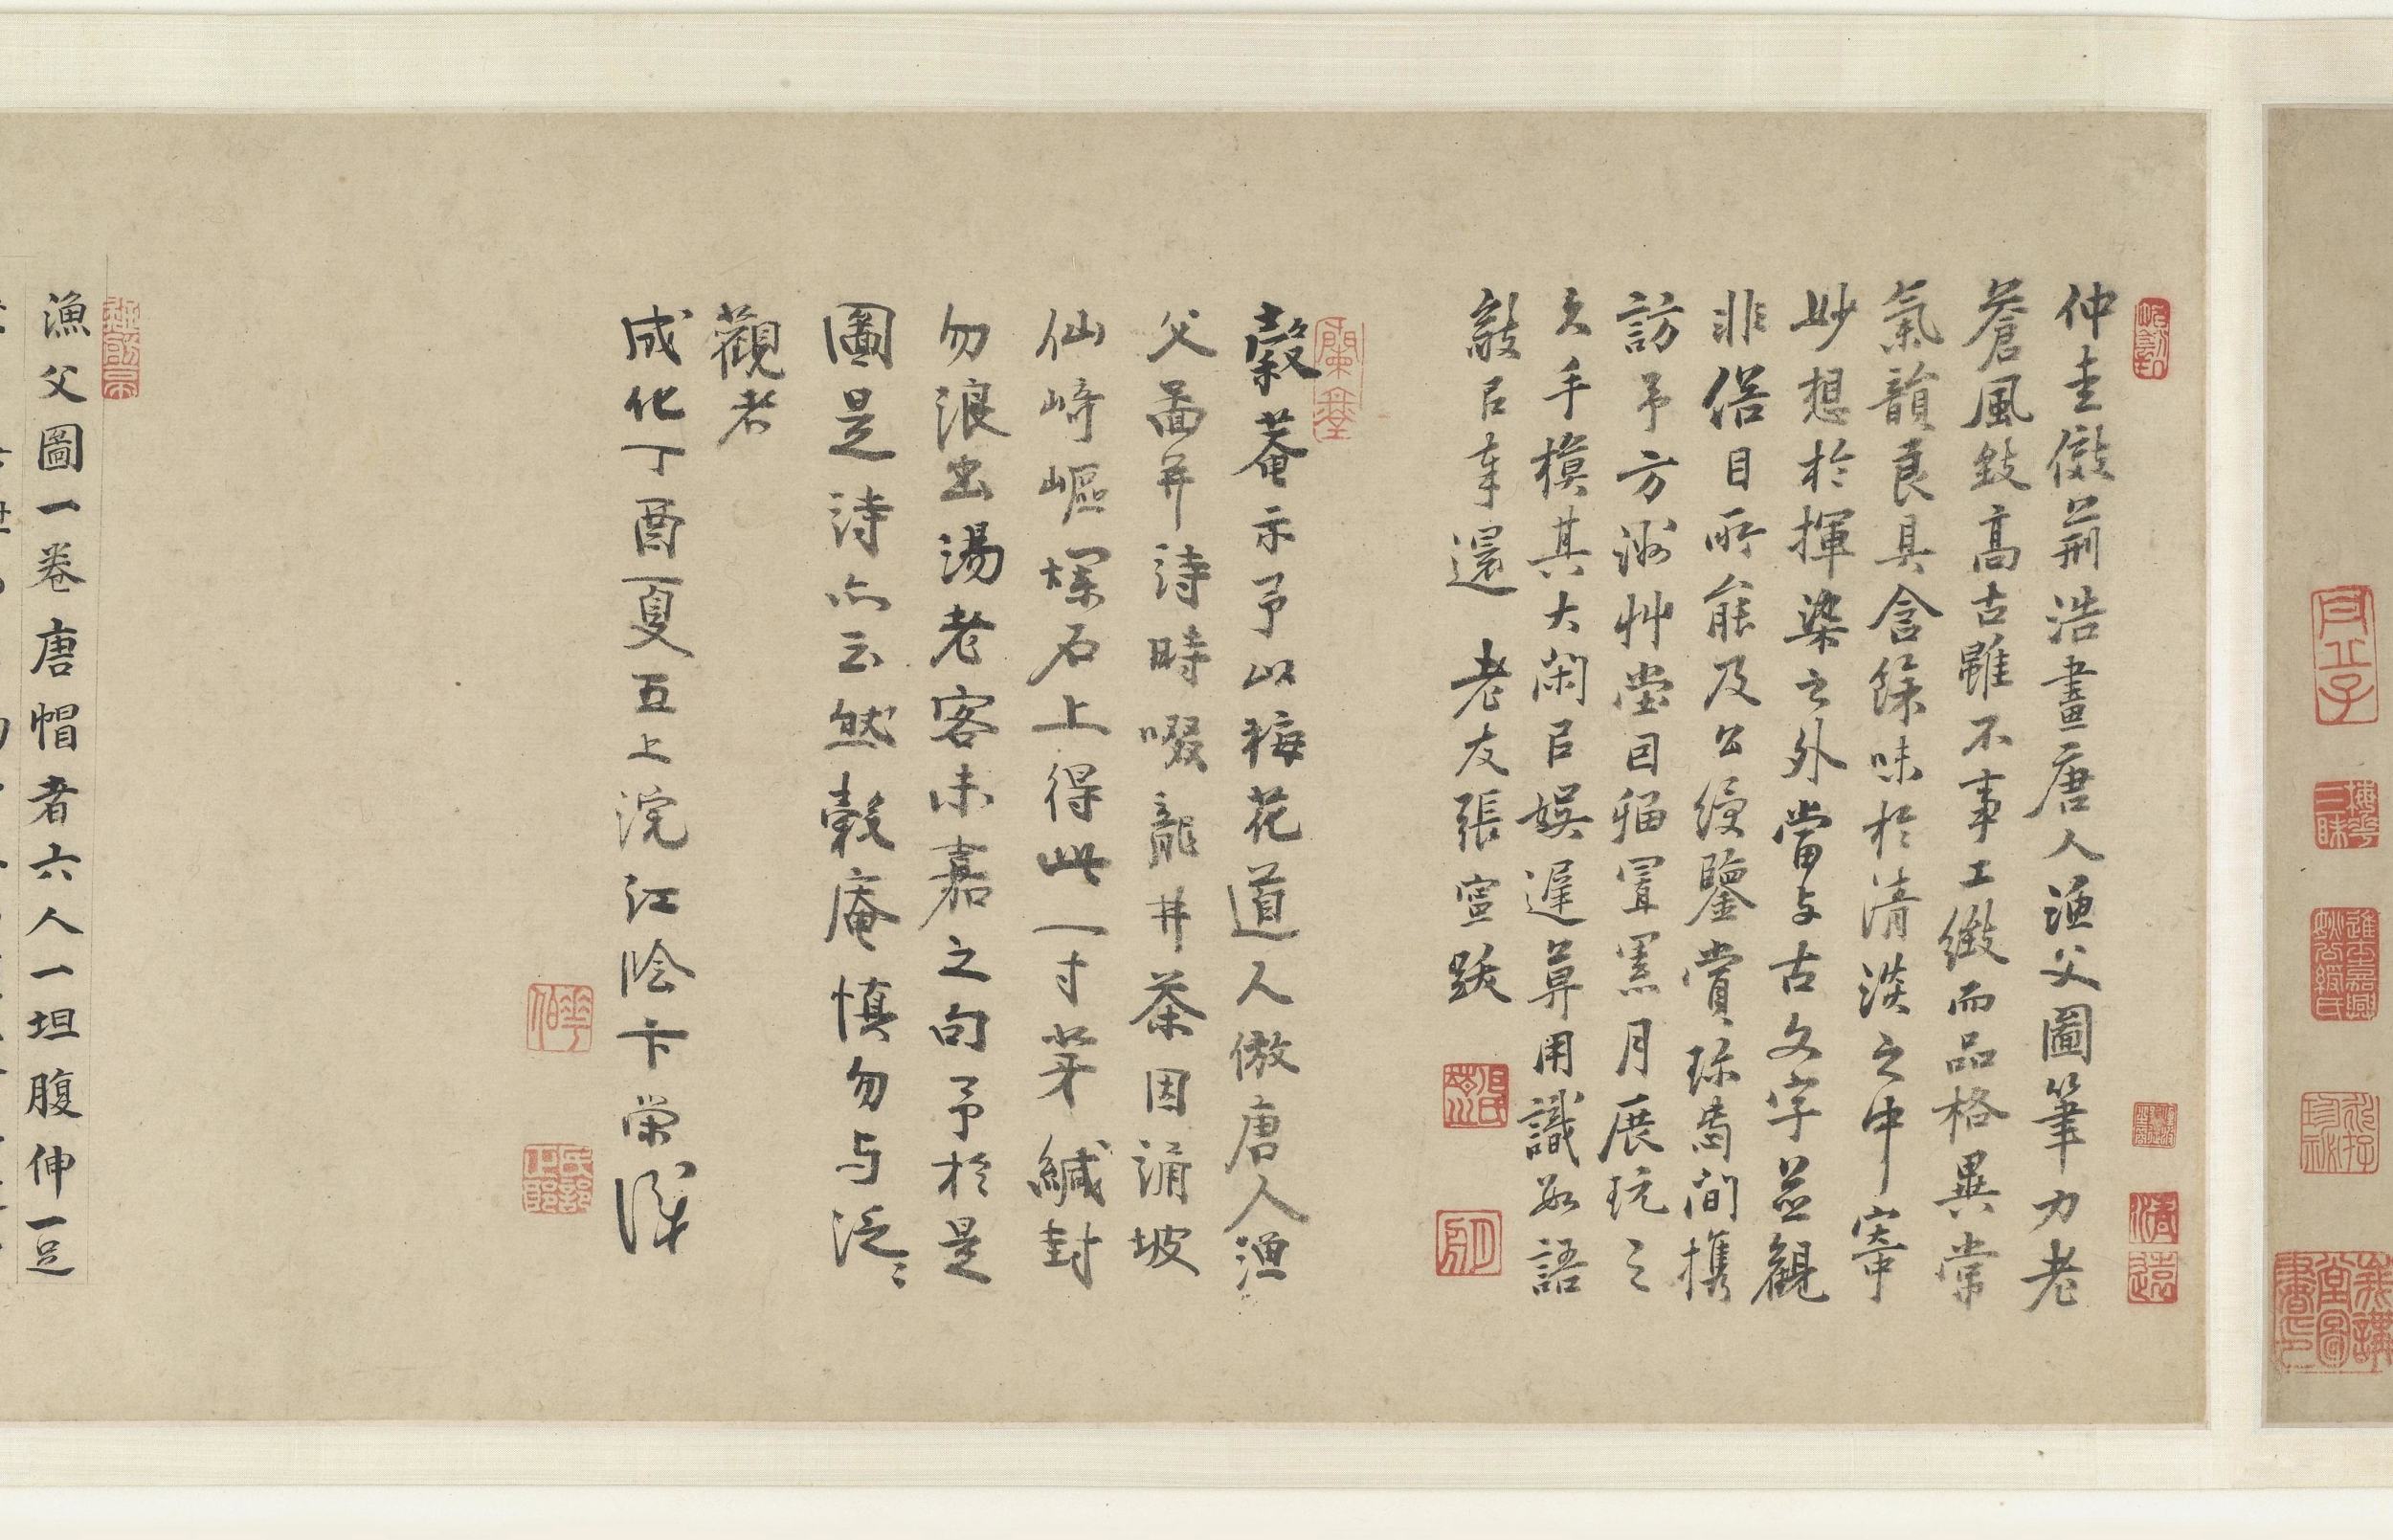 仲圭倣荊浩畫唐人漁父圖筆力老
蒼風致高古雖不事工緻而品格異常
氣韻良具含餘味於清淡之中寄
妙想於揮染之外當与古文字並觀
非俗目所能及公綬鑒賞珎蔵間携
訪予方洲艸堂目 月展玩之
手模其大閑㠯娯遅算用識數語
㠯 還 老友張寧跋
縠菴示予以梅花道人倣唐人漁
父畫并詩時啜龍井茶因誦坡
仙崎嶇爛石上得此一寸芽緘封
勿浪出湯老客未嘉之句予於是
圖是詩亦云然縠庵慎勿与泛〻
觀者
成化丁酉夏五上浣江隂卞荣識
漁父圖一卷唐帽者六人一坦腹伸一足
梅華三昧
張氏
清遠
蘭臺
義講堂圖書印